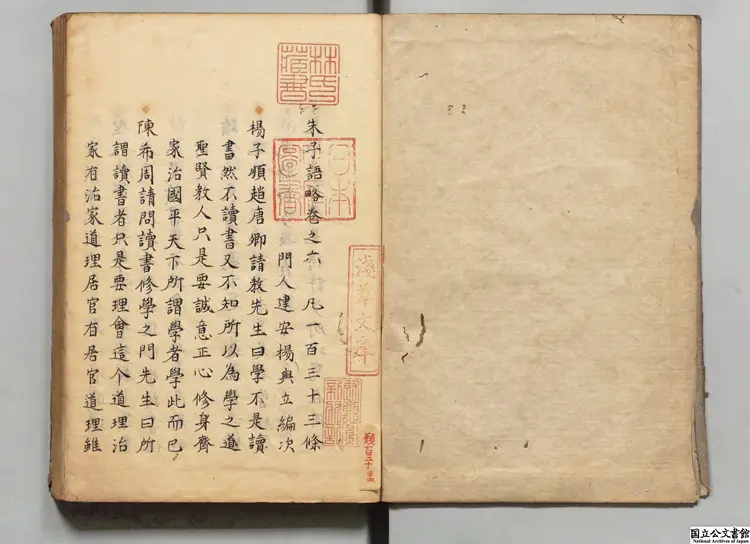 朱子語略卷之六 凡一百三十三條
門人建安楊與立編次
楊子順趙唐卿請教先生曰學不是讀
書然不讀書又不知所以為學之道
聖賢教人只是要誠意正心修身齊
家治國平天下所謂學者學此而已
陳希周請問讀書修學之門先生曰所
謂讀書者只是要理會這个道理治
家有治家道理居官有居官道理雖
林氏藏書
日本
圖書
淺草文庫
国立公文書館
National Archives of Japan